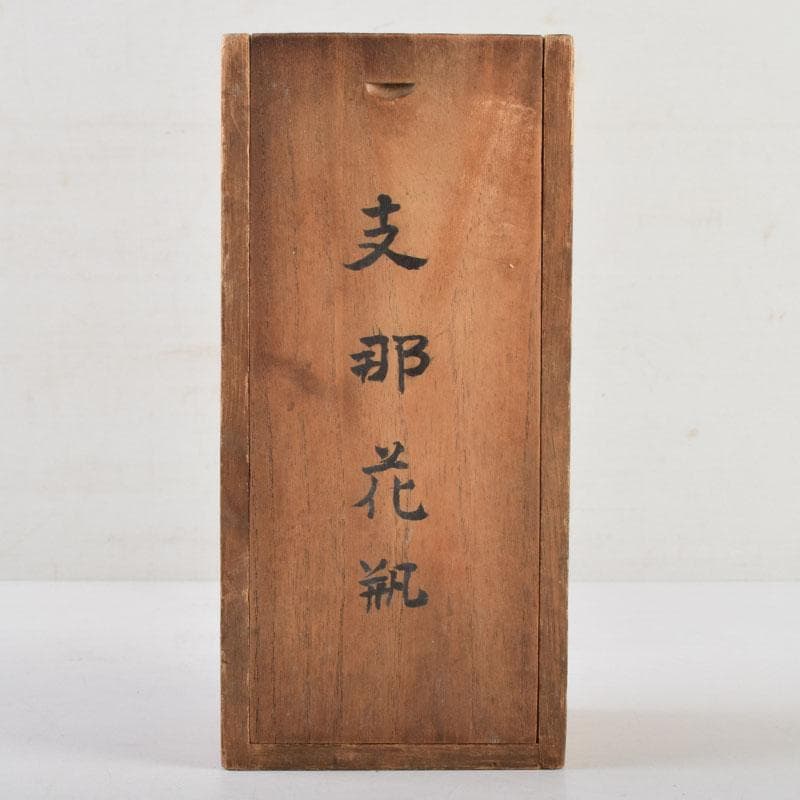 支那花瓶